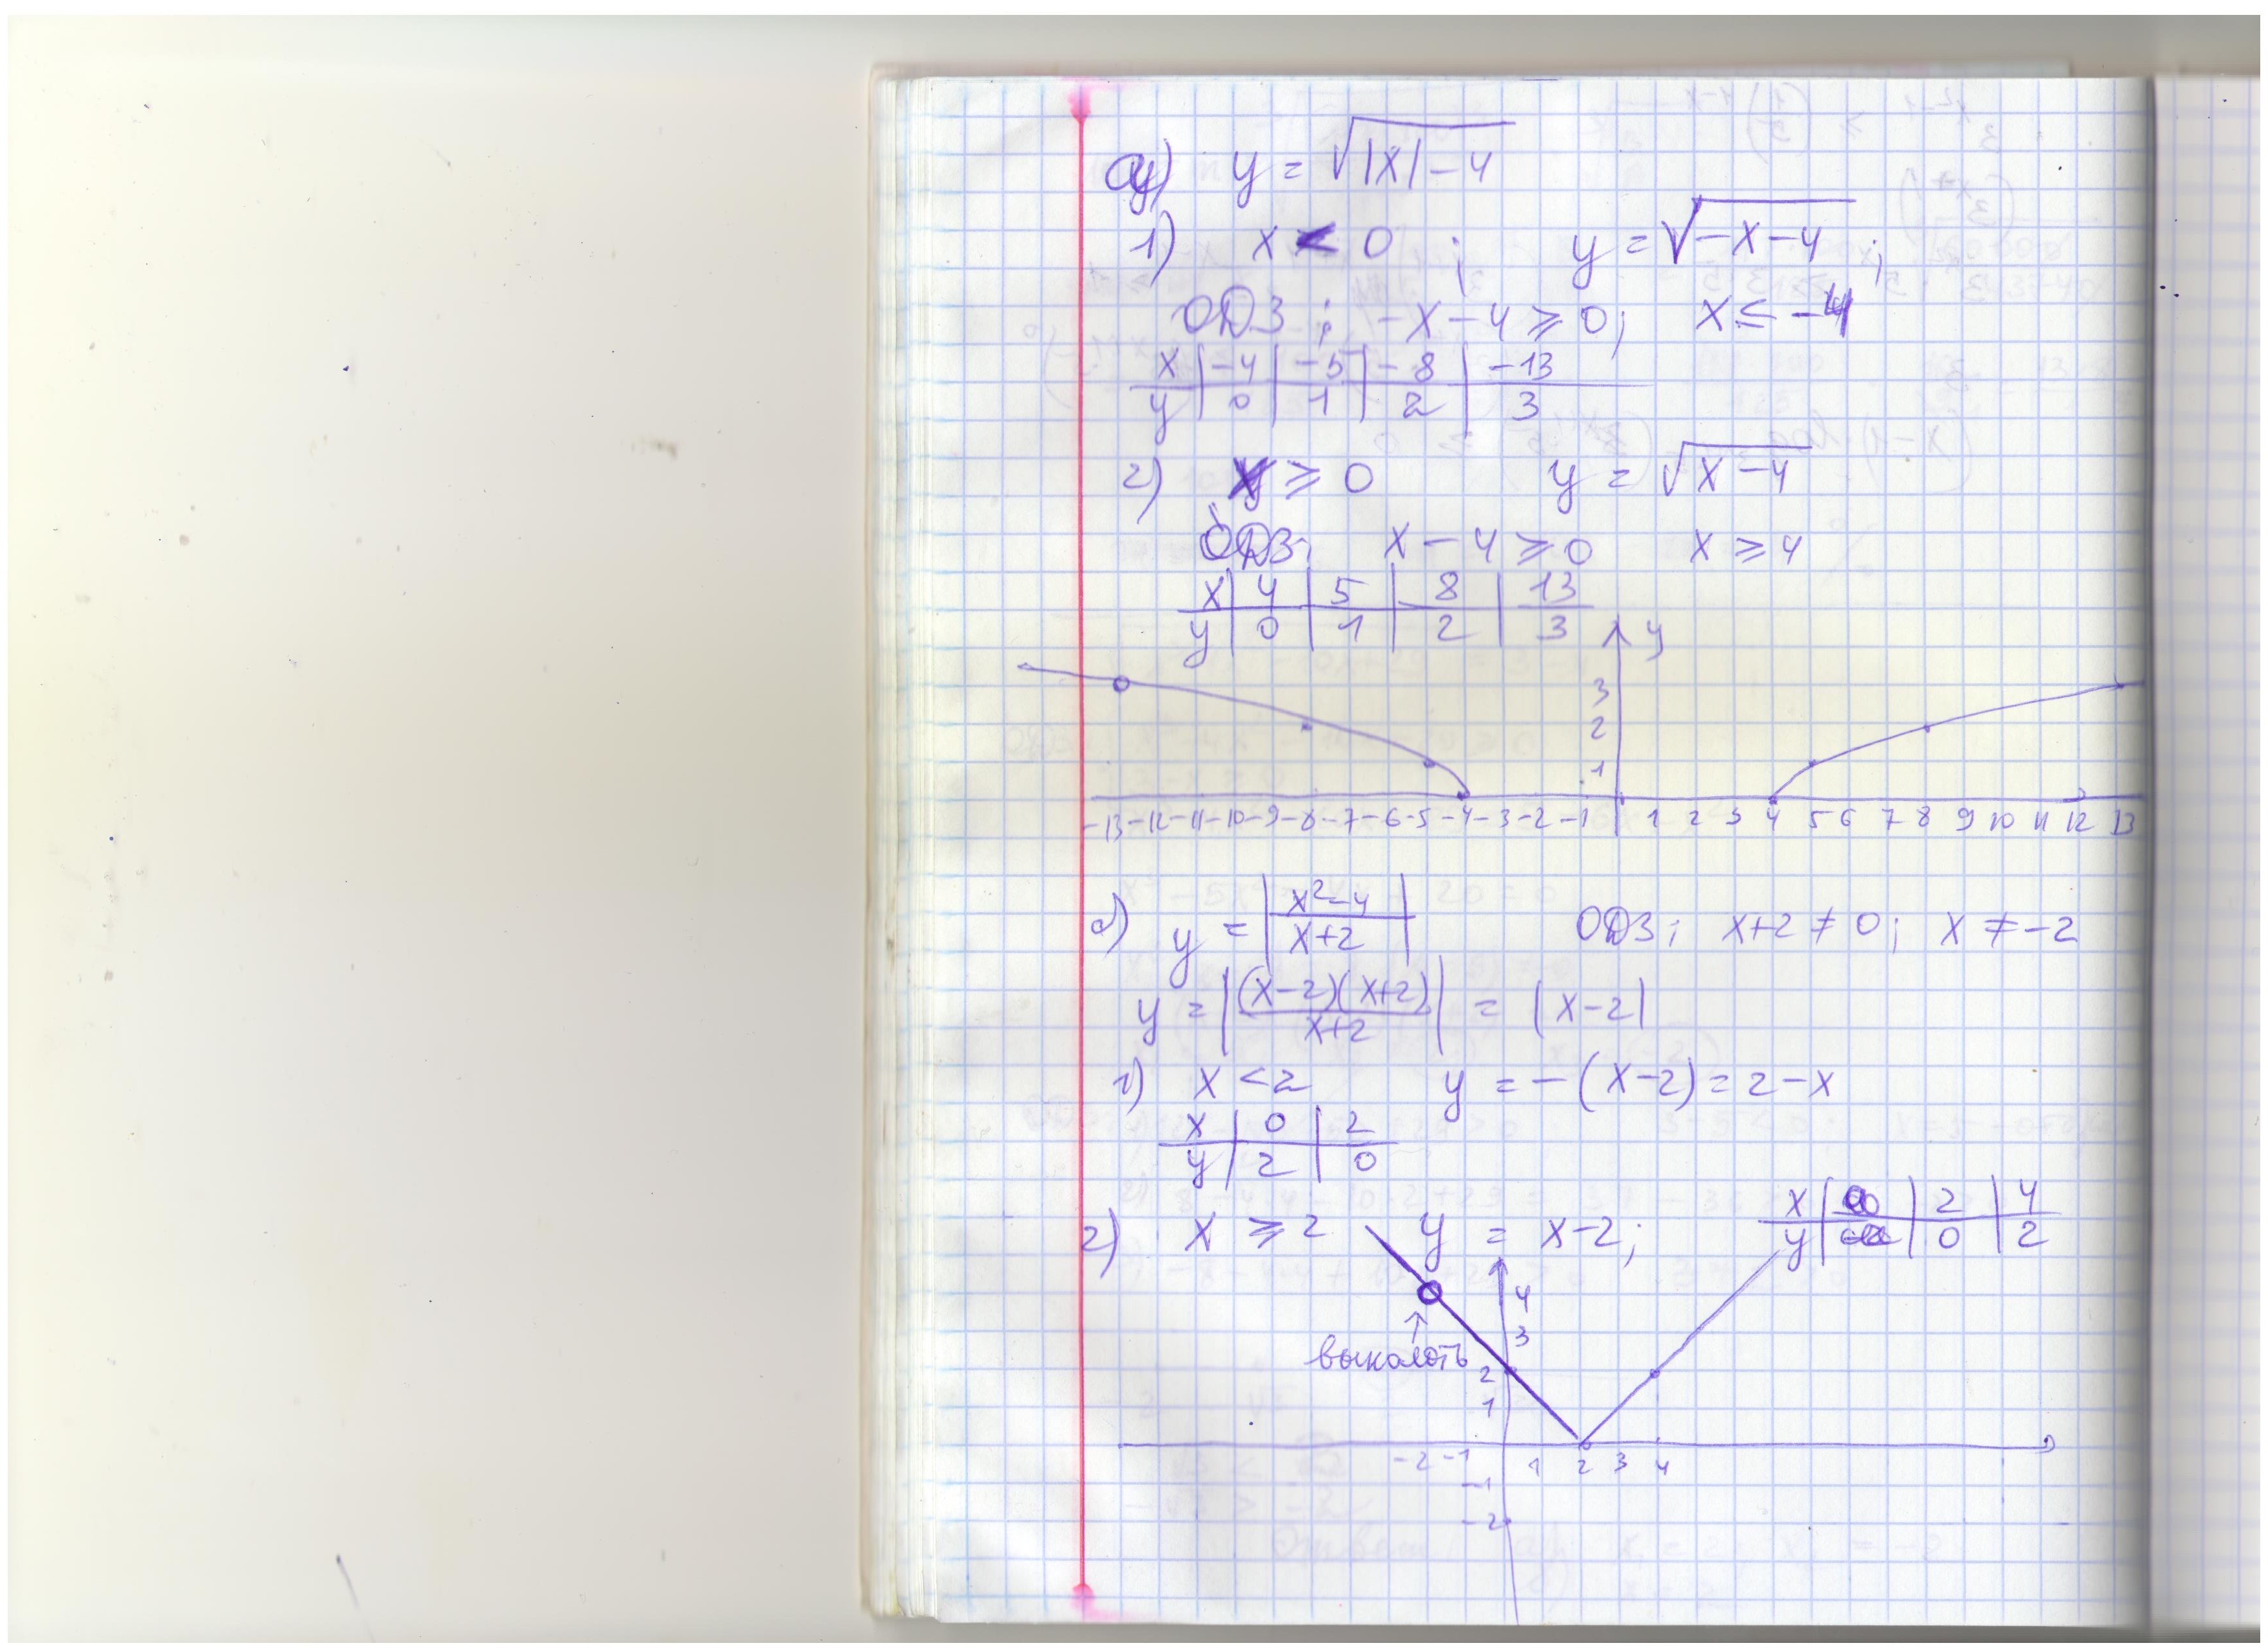 а) y = √|x|-4
1) x < 0 ; y = √-x-4 ;
ОДЗ ; -x-4 ⩾ 0; x ≤ -4
x | -4 | -5 | -8 | -13
y | 0 | 1 | 2 | 3
2) x ⩾ 0 y = √x-4
ОДЗ; x-4 ⩾ 0 x ⩾ 4
x | 4 | 5 | 8 | 13
y | 0 | 1 | 2 | 3
y
3
2
1
-13 -12 -11 -10 -9 -8 -7 -6 -5 -4 -3 -2 -1 1 2 3 4 5 6 7 8 9 10 11 12 13
y = |x²-4 / x+2| ОДЗ; x+2 ≠ 0; x ≠ -2
y = |(x-2)(x+2) / x+2| = |x-2|
1) x < 2 y = -(x-2) = 2-x
x | 0 | 2
y | 2 | 0
2) x ⩾ 2 y = x-2;
x | 2 | 4
y | 0 | 2
4
3
выколоть
2
1
-2 -1 1 2 3 4
-1
-2